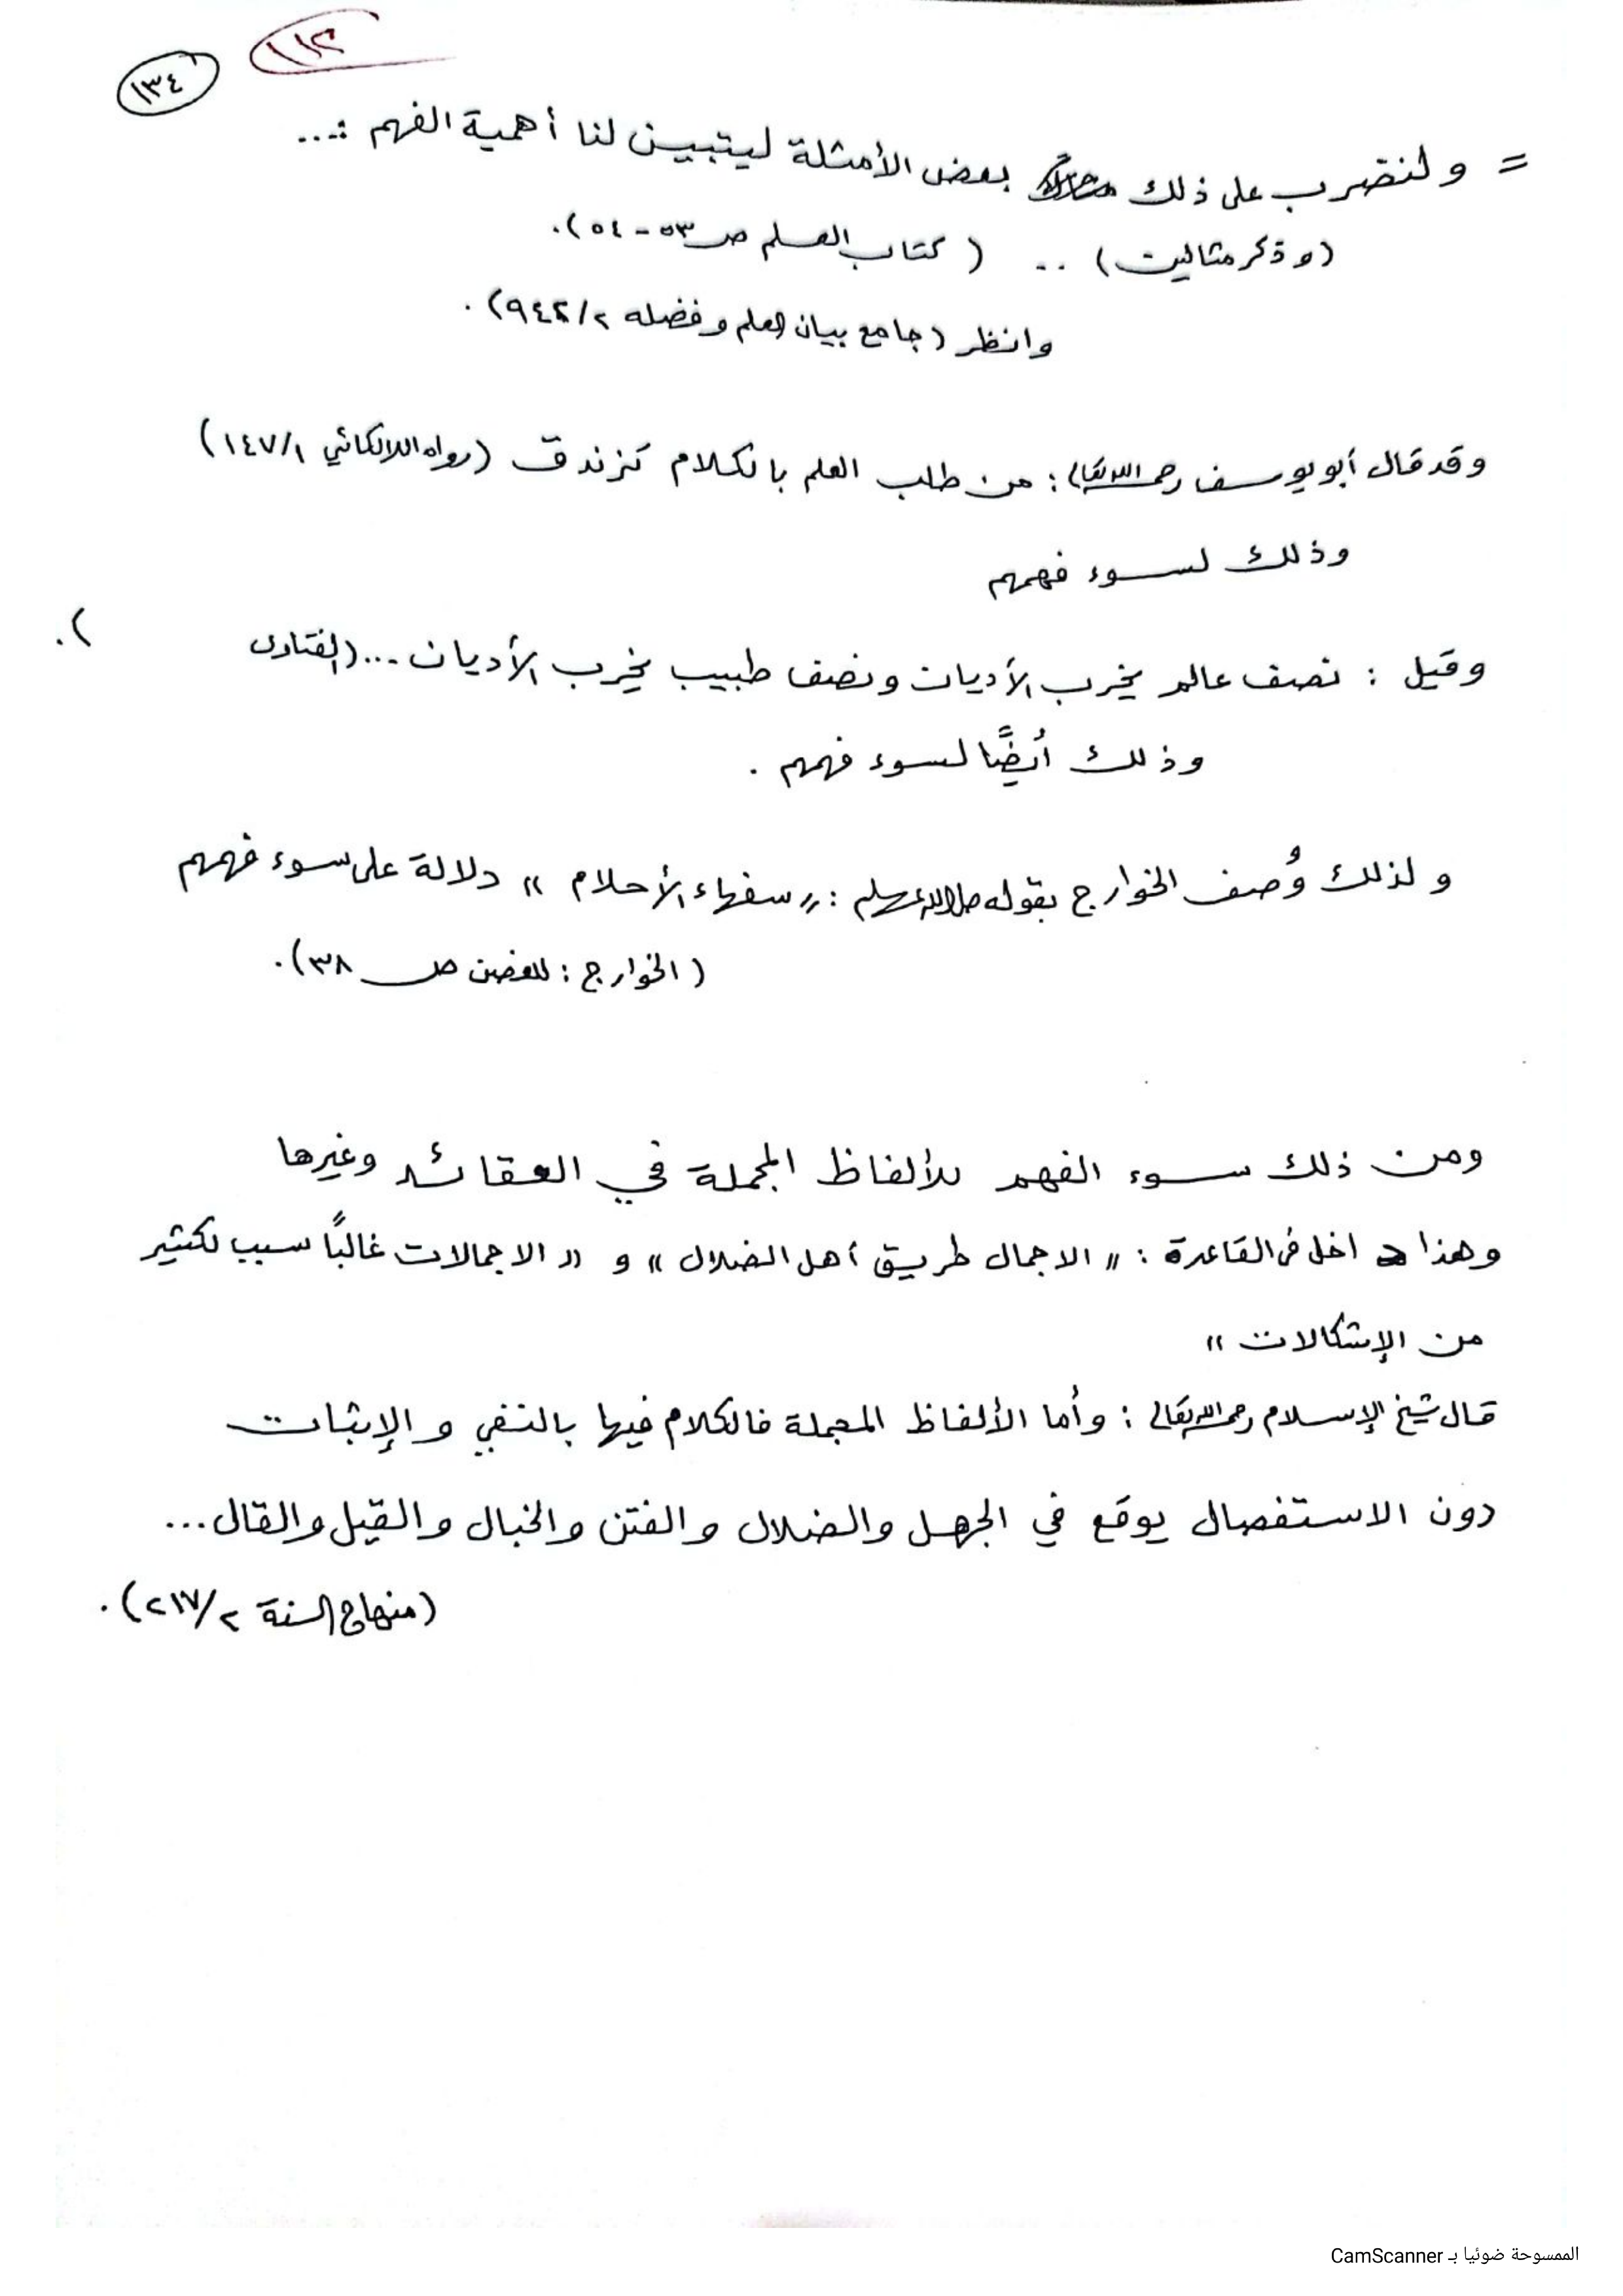 ١١٣
١٣٤
= ولنضرب على ذلك بعض الأمثلة ليتبين لنا أهمية الفهم :...
(وذكر مثالين) .. (كتاب العلم ص ٥٣ - ٥٤).
وانظر (جامع بيان العلم وفضله ٢/ ).
وقد قال أبو يوسف رحمه الله تعالى : من طلب العلم بالكلام تزندق (رواه اللالكائي ١٤٧/١)
وذلك لسوء فهمهم
وقيل : نصف عالم يخرب الأديان ونصف طبيب يخرب الأديان ... (الفتاوى ).
وذلك أيضًا لسوء فهمهم .
ولذلك وُصف الخوارج بقوله صلى الله عليه وسلم : «سفهاء الأحلام» دلالة على سوء فهمهم
(الخوارج : للغصن ص ٣٨).
ومن ذلك سوء الفهم للألفاظ المجملة في العقائد وغيرها
وهذا داخل في القاعدة : «الاجمال طريق أهل الضلال» و «الاجمالات غالبًا سبب لكثير
من الإشكالات»
قال شيخ الإسلام رحمه الله تعالى : وأما الألفاظ المجملة فالكلام فيها بالنفي والإثبات
دون الاستفصال يوقع في الجهل والضلال والفتن والخبال والقيل والقال...
(منهاج السنة ٢١٧/٢).
الممسوحة ضوئيا بـ CamScanner